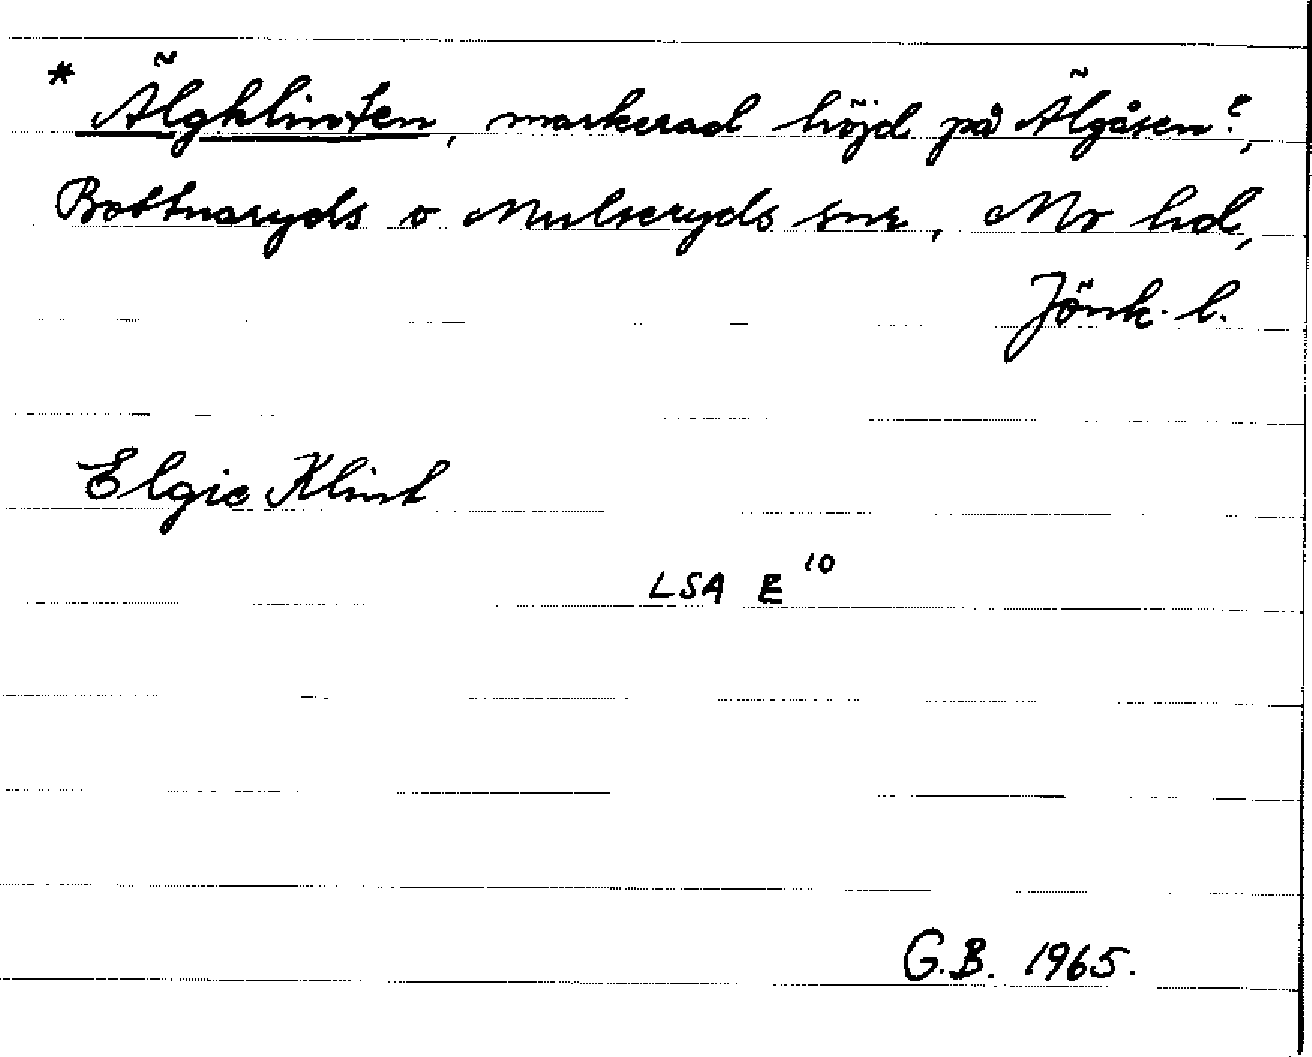 * Älgklinten, markerad höjd på Älgåsen?,
Bottnaryds o Mulseryds snr, Mo hd,
Jönk. l.
Elgie Klint
LSA E 10
G.B. 1965.